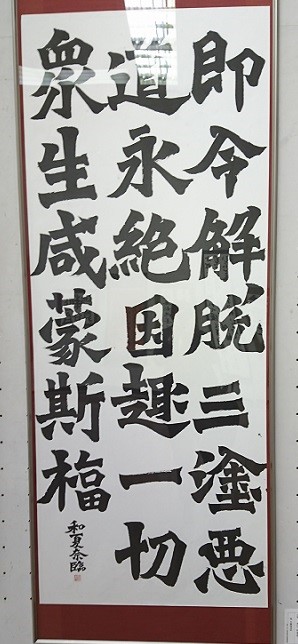 即令解脱三塗悪
道永絶因趣一切
衆生咸蒙斯福
和夏奈臨